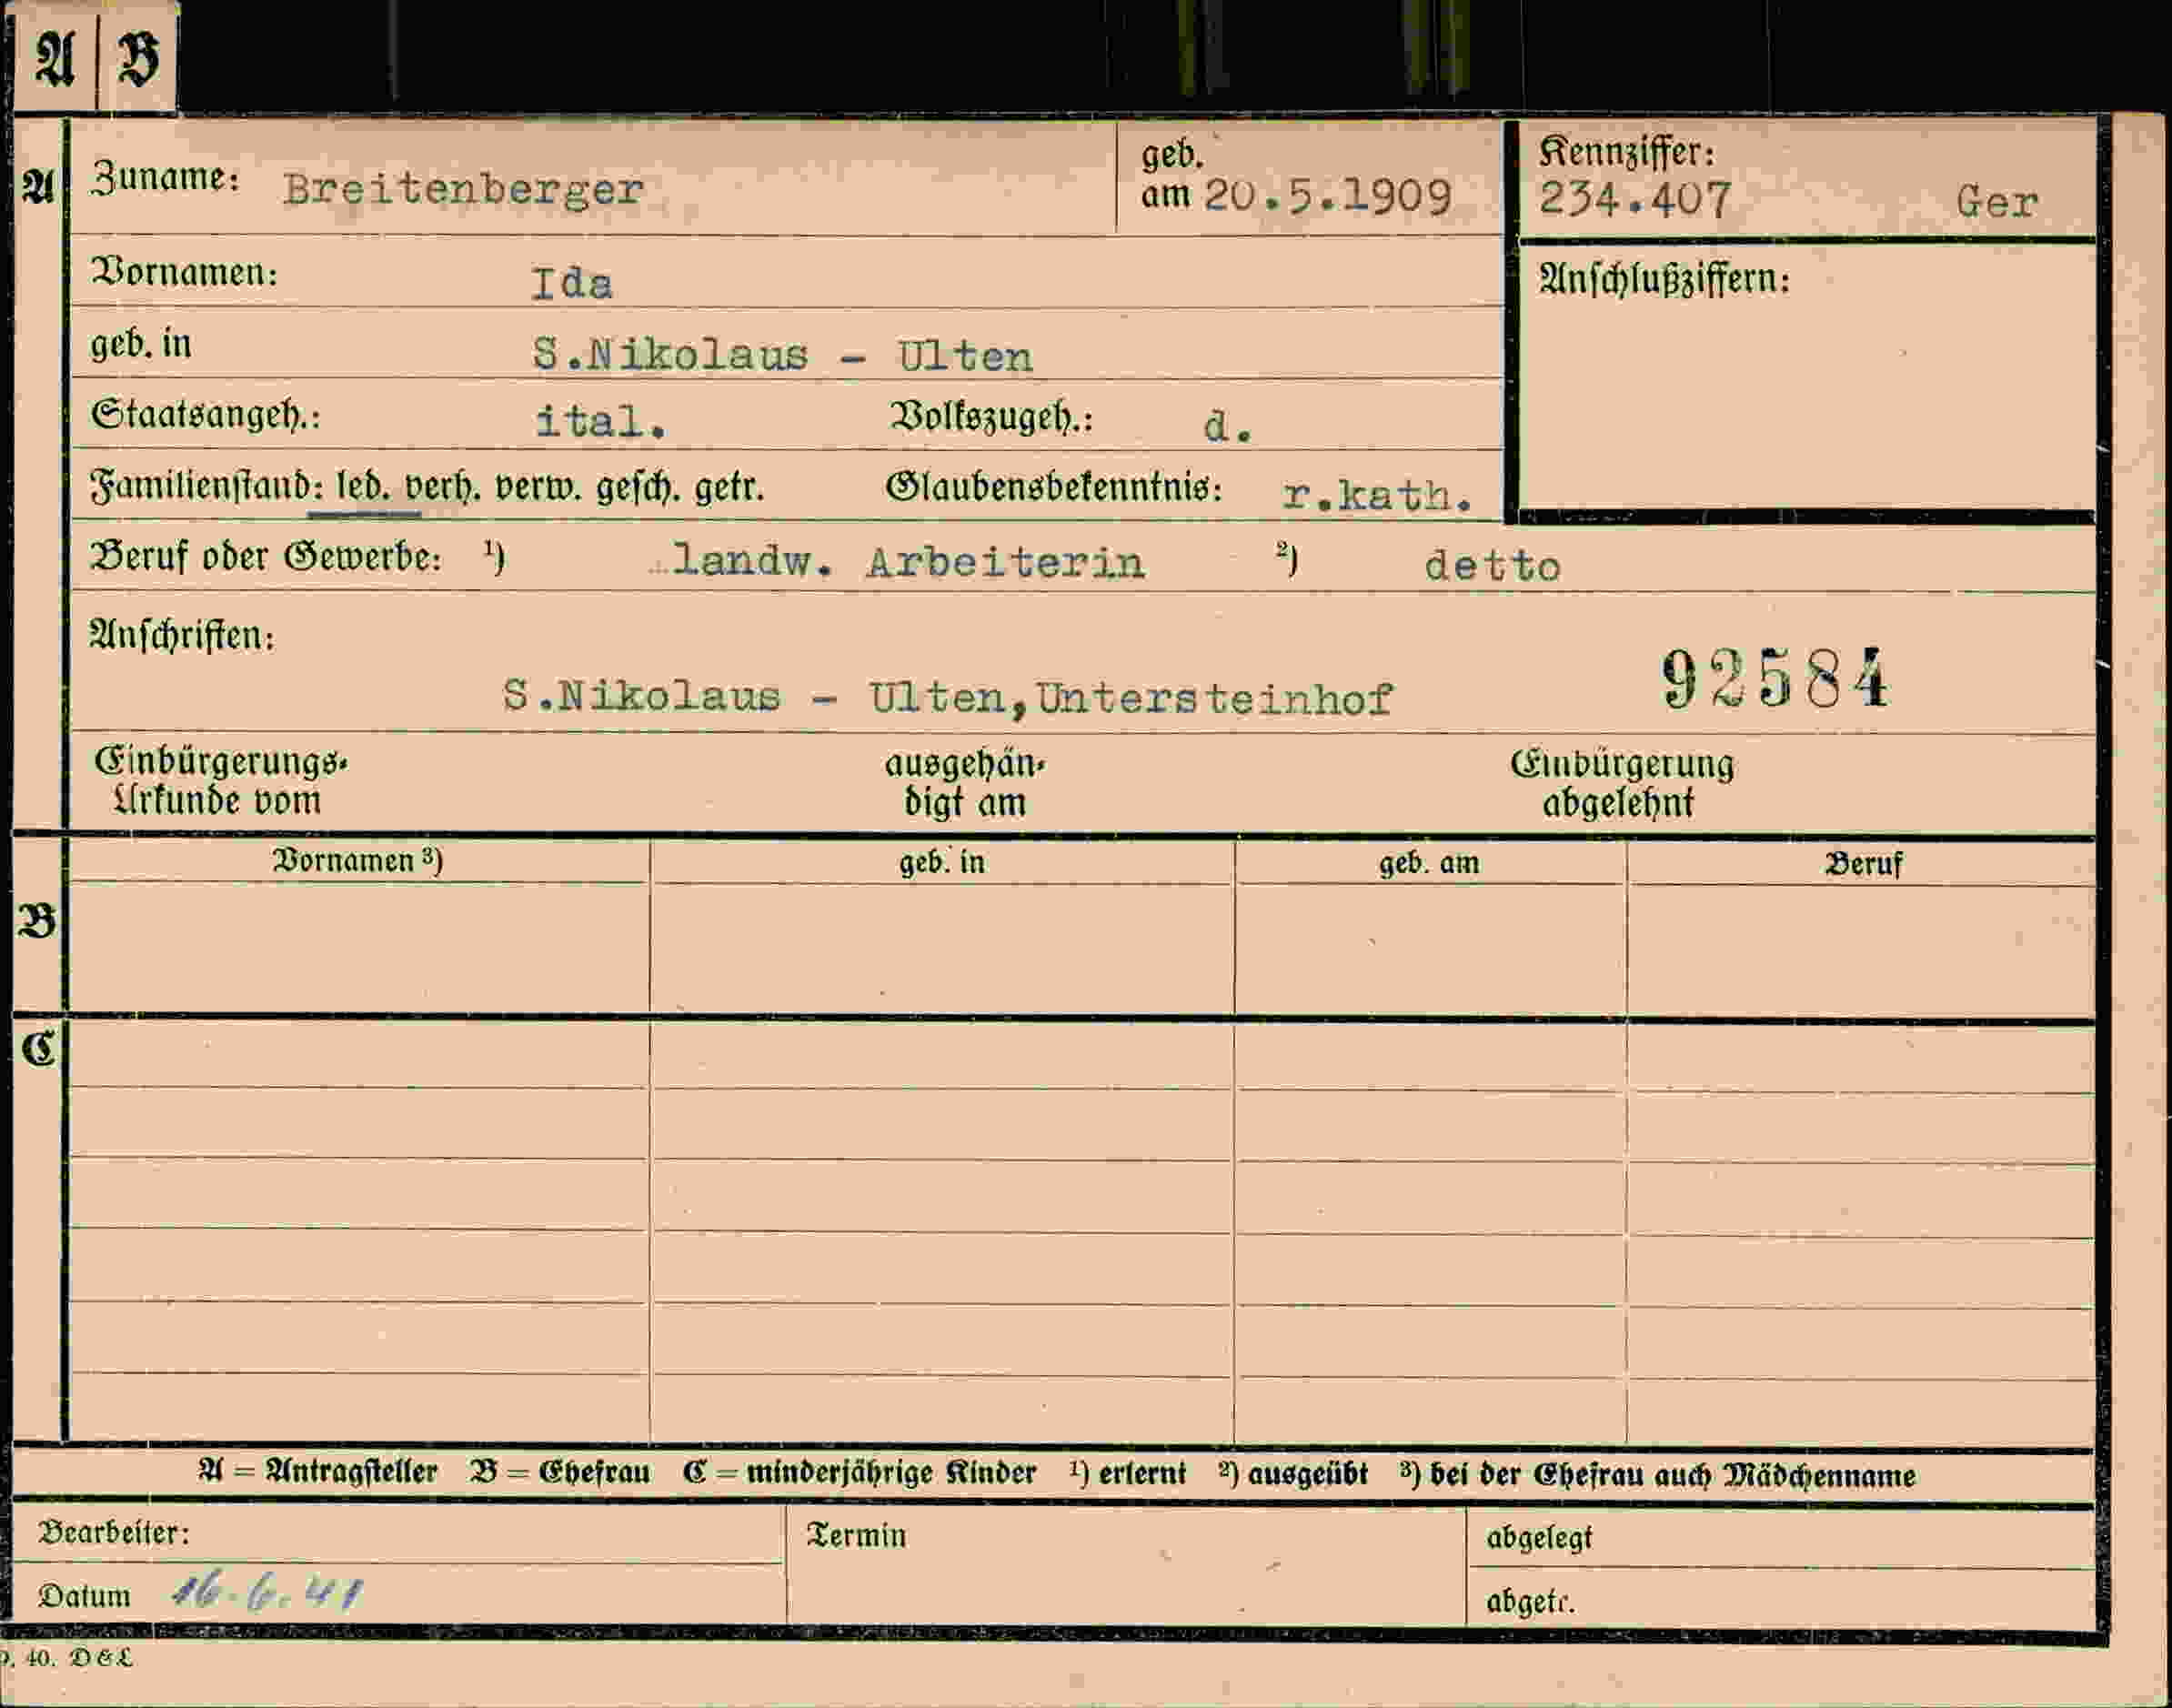 A B
A Zuname: Breitenberger geb. am 20.5.1909 Kennziffer: 234.407 Ger
Vornamen: Ida Anschlußziffern:
geb. in S.Nikolaus - Ulten
Staatsangeh.: ital. Volkszugeh.: d.
Familienstand: led. verh. verw. gesch. getr. Glaubensbekenntnis: r.kath.
Beruf oder Gewerbe: ¹) landw. Arbeiterin ²) detto
Anschriften:
S.Nikolaus - Ulten,Untersteinhof 92584
Einbürgerungs- ausgehän- Einbürgerung
Urkunde vom digt am abgelehnt
Vornamen ³) geb. in geb. am Beruf
B
C
A = Antragsteller B = Ehefrau C = minderjährige Kinder ¹) erlernt ²) ausgeübt ³) bei der Ehefrau auch Mädchenname
Bearbeiter: Termin abgelegt
Datum 16.6.41 abgetr.
40. D & L